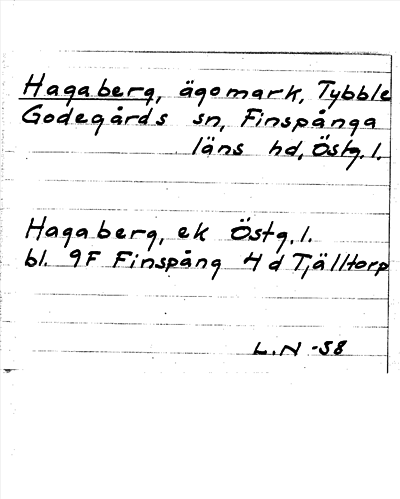 Hagaberg, ägomark, Tybble
Godegårds sn, Finspånga
läns hd, Östg. l.
Hagaberg, ek Östg. l.
bl. 9F Finspång 4 d Tjälltorp
L.N -58